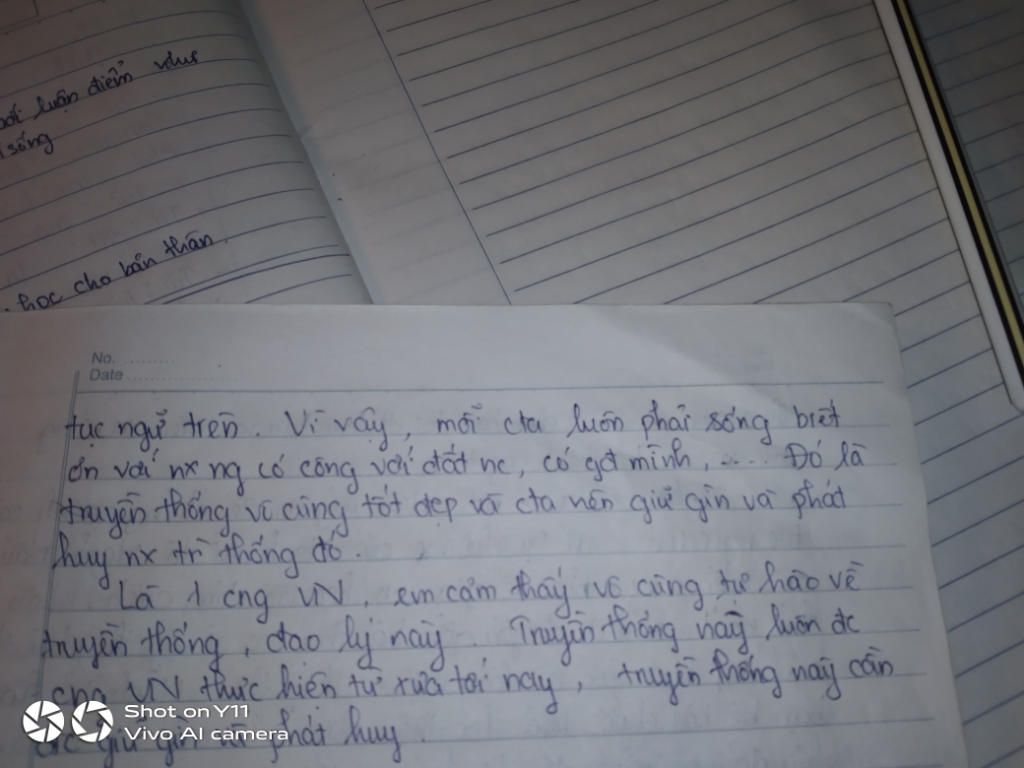 luận điểm như
sống
học cho bản thân.
No. ..........
Date ................
tục ngữ trên. Vì vậy, mỗi cta luôn phải sống biết
ơn với nx ng có công với đất nc, có gđ mình, .... Đó là
truyền thống vô cùng tốt đẹp và cta nên giữ gìn và phát
huy nx tr` thống đó.
Là 1 cng VN, em cảm thấy vô cùng tự hào về
truyền thống, đạo lý này. Truyền thống này luôn đc
cng VN thực hiện từ xưa tới nay, truyền thống này cần
giữ gìn và phát huy.
Shot on Y11
Vivo AI camera